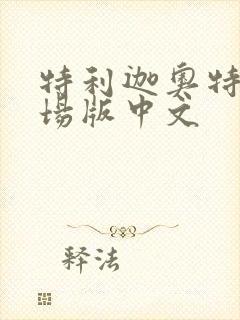 特利迦奥特
场版中文
释法